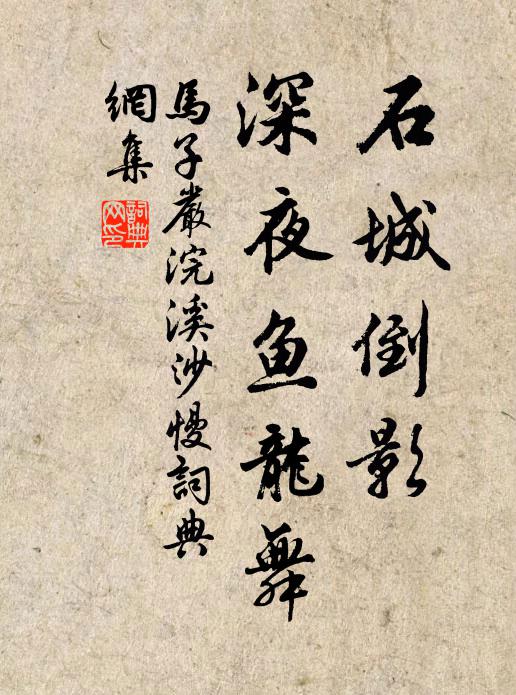 石城倒影
深夜鱼龍舞
馬子嚴浣溪沙慢詞典
網集
詞典網印